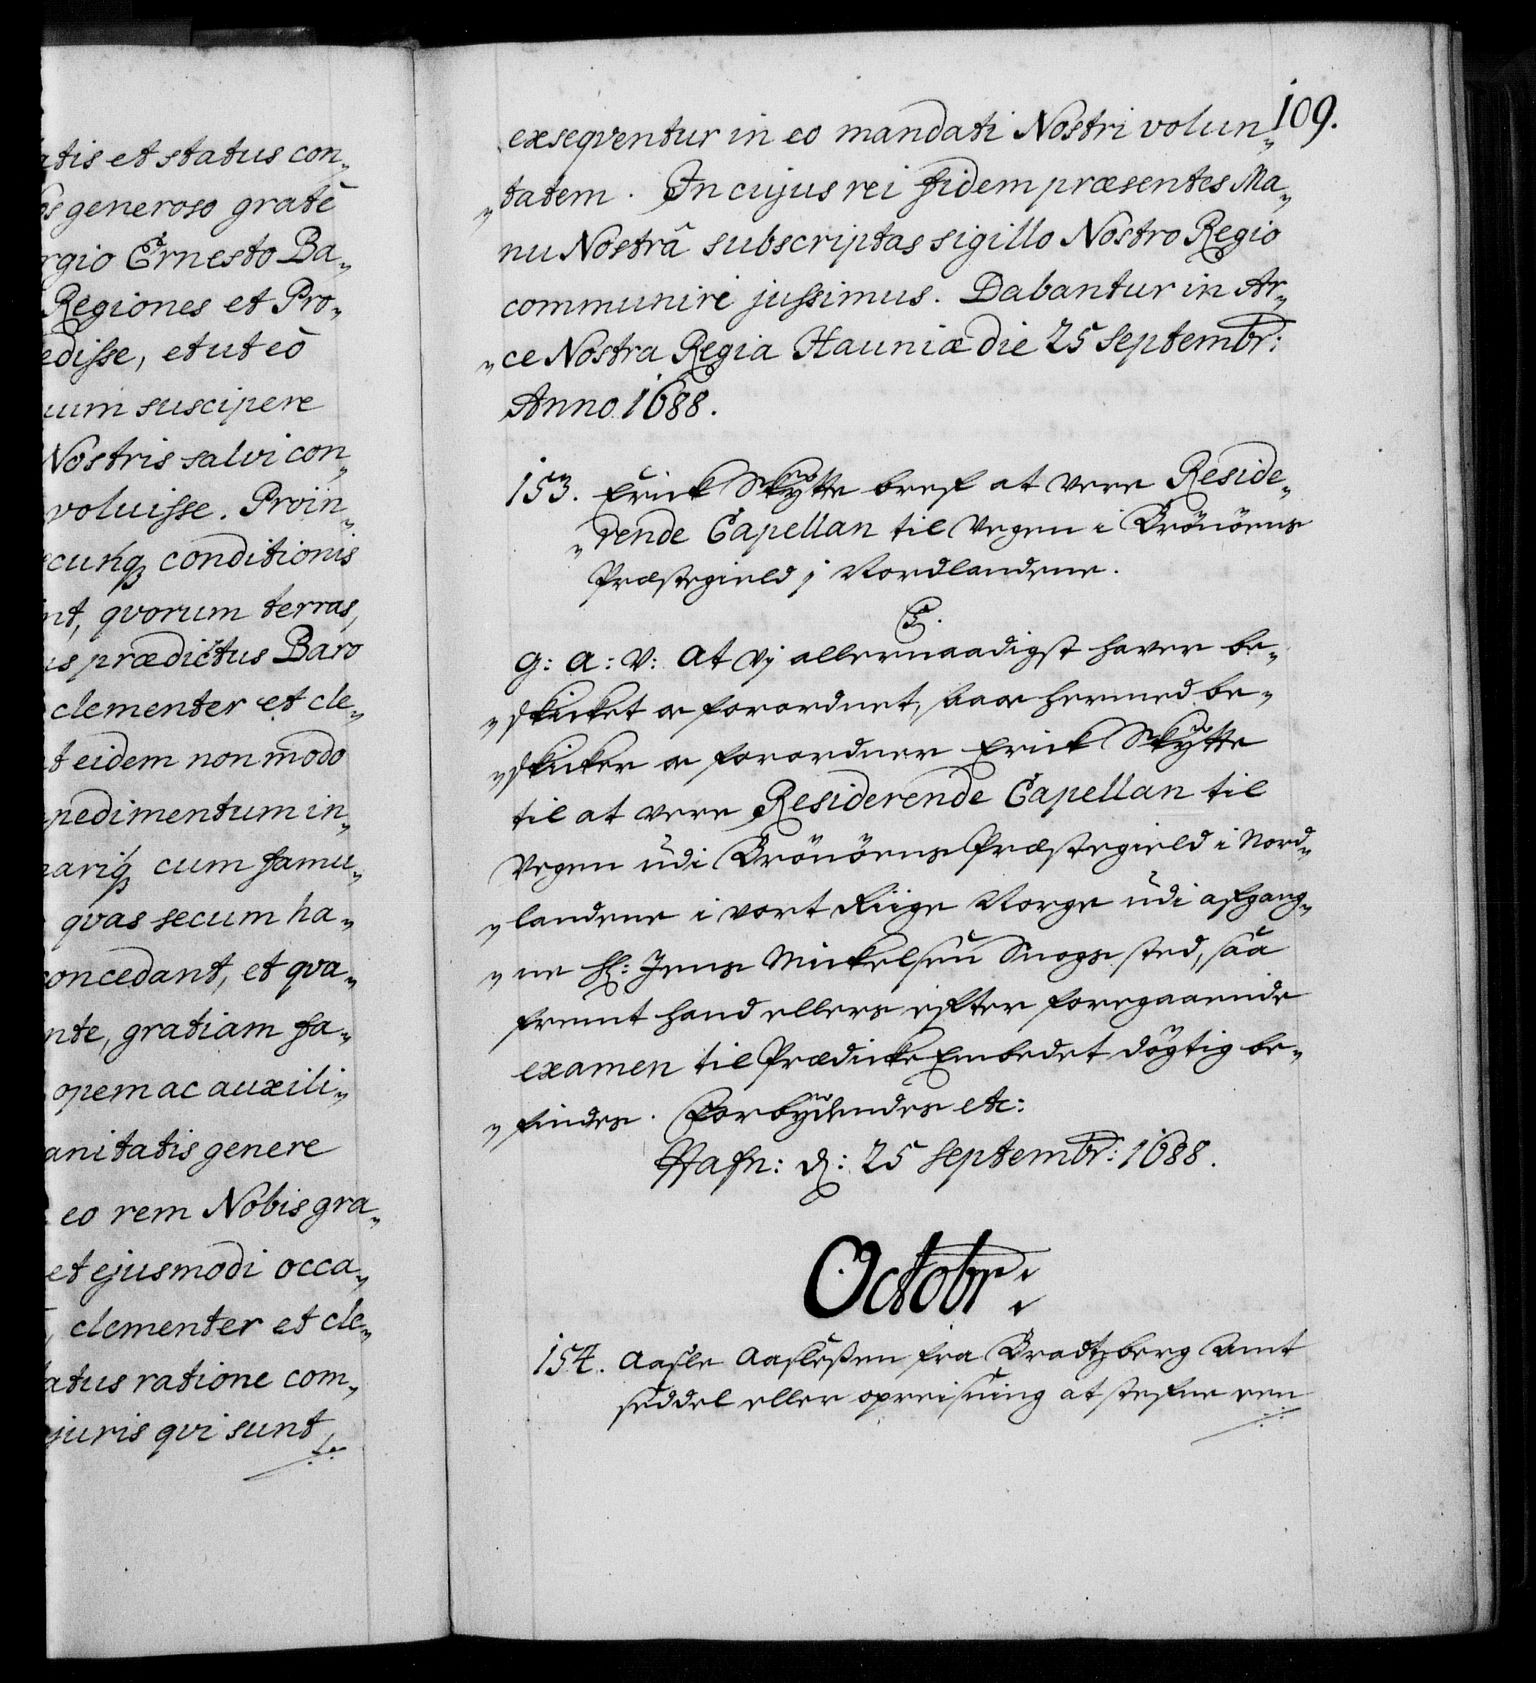 atis et status con„
os generoso gratè
rgio Ernesto Ba„
Regiones et Pro„
edisse, et ut eò
uum suscipere
Nostris salvi con„
voluisse. Proin„
cunq conditionis
nt, qvorum terras,
us prædictus Baro
clementer et cle„
t eidem non modo
pedimentum in„
nariq cum famu„
qvas secum ha„
concedant, et qva„
nte, gratiam fa„
opem ac auxili„
anitatis genere
eo rem Nobis gra„
et ejusmodi occa„
, clementer et cle„
atus ratione com„
juris qvi sunt
109.
exseqventur in eo mandati Nostri volun„
„tatem. In cujus rei fidem præsentes Ma„
nu Nostrâ subscriptas sigillo Nostro Regio
communire jussimus. Dabantur in Ar„
„ce Nostra Regia Hauniæ die 25 Septembr:
Anno 1688.
153. Erick Skytte bref at være Reside„
„rende Capellan til Vegen i Brönöens
Præstegield j Nordlandene.
C5.
G: A: V: At Vj allernaadigst haver be„
„skicket og forordnet, saa hermed be„
„skicker og forordner Erick Skytte
til at være Residerende Capellan til
Vegen udi Brönöens Præstegield i Nord„
„landene i vort Riige Norge udi afgang„
„ne Hr: Jens Mickelsøn Snogs sted, saa
fremt hand ellers efter foregaaende
examen til Prædicke Embedet dögtig be„
„findes. Forbydendes etc:
Hafn: d: 25 Septembr: 1688.
Octobr:
154. Aasle Aaslesen fra Bradtzberg Amt
seddel eller opreisning at stefne een